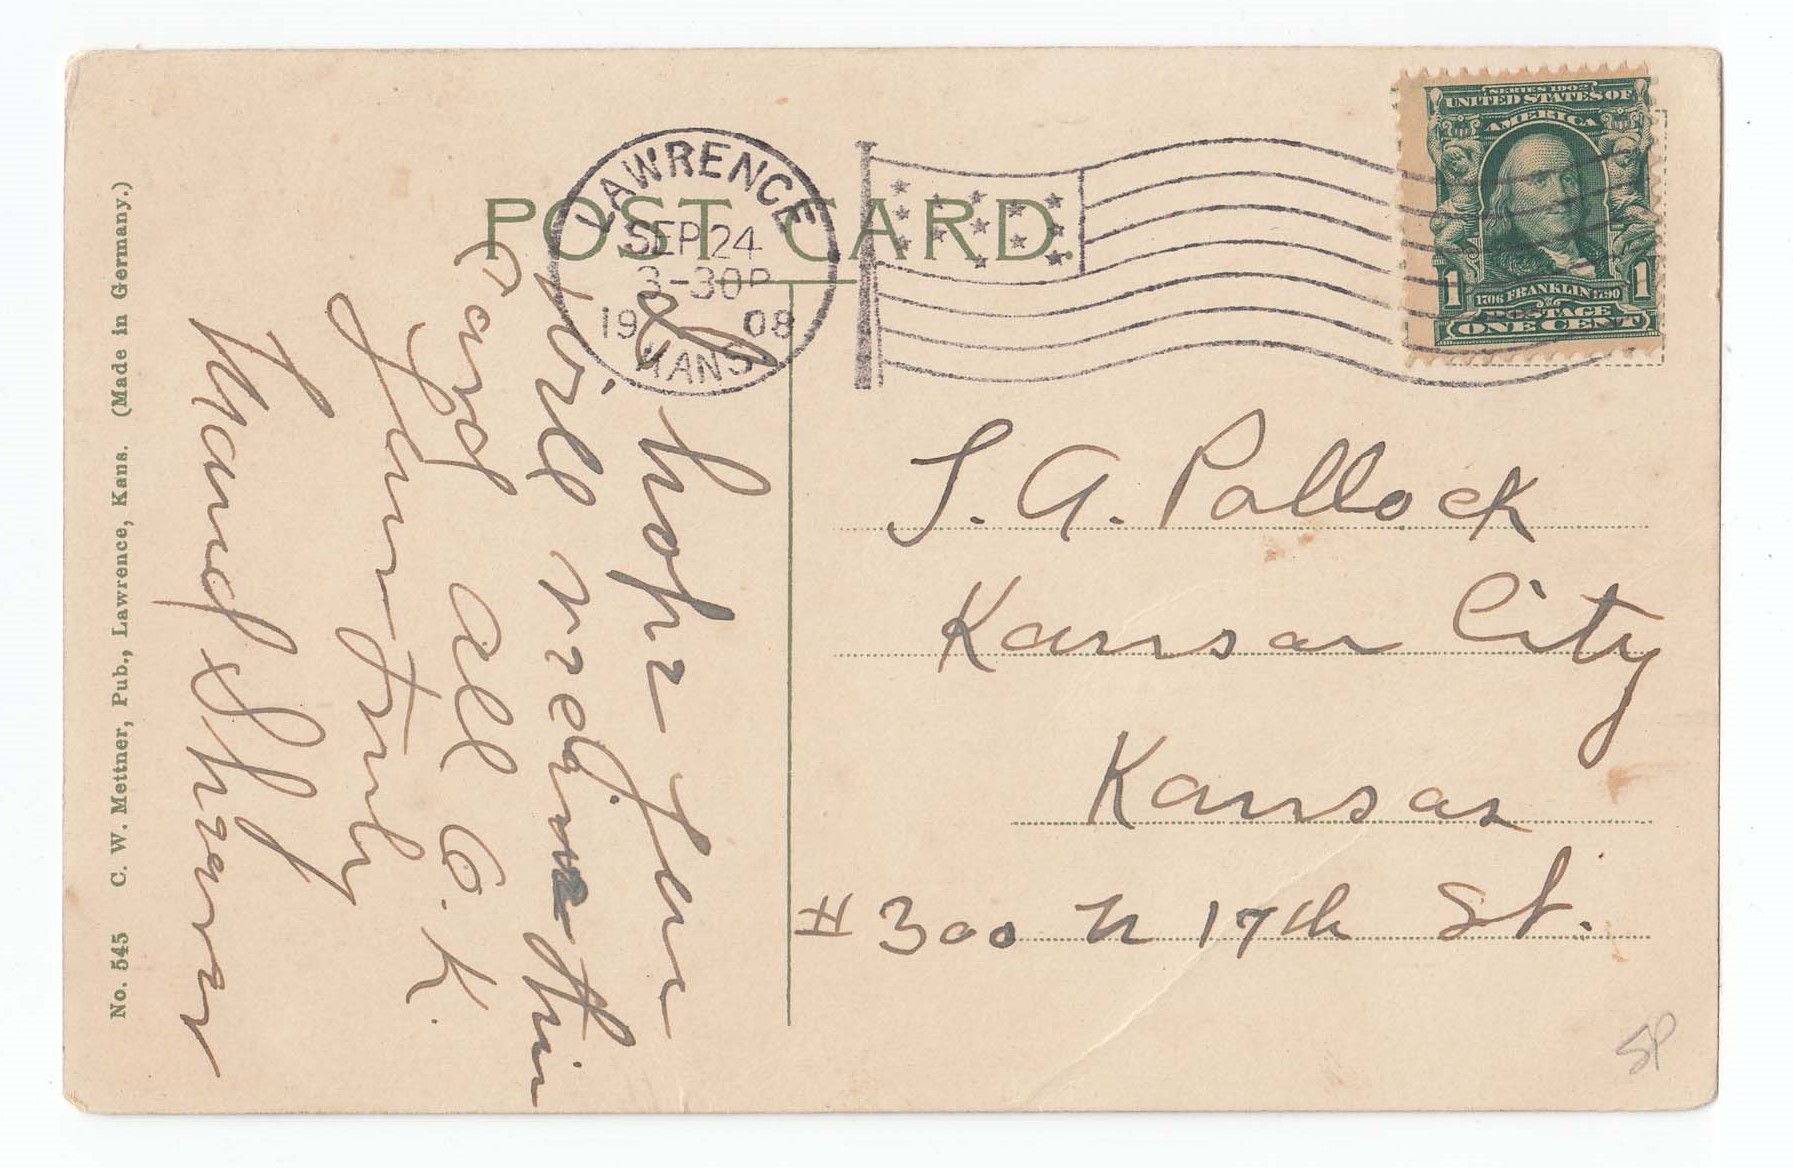 POST CARD.
LAWRENCE
SEP 24
3-30P
1908
KANS.
SERIES 1902
UNITED STATES OF
AMERICA
1 1
1706 FRANKLIN 1790
POSTAGE
ONE CENT
I hope you
will recieve this
Card all O.K.
Yours truly
Maud
No. 545 C. W. Mettner, Pub., Lawrence, Kans. (Made in Germany.)
A. Pollock
Kansas City
Kansas
# 300 N 17th St.
SP